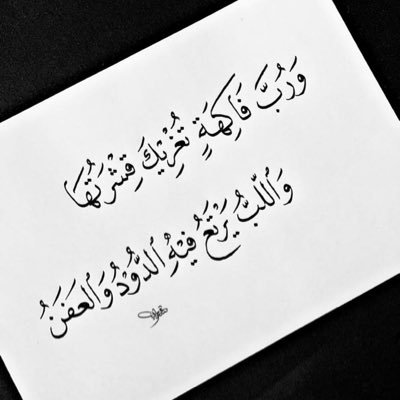 وَرُبَّ فَاكِهَةٍ تُغْرِيْكَ قِشْرَتُهَا
وَٱللُّبُّ يَرْتَعُ فِيْهِ ٱلدُّوْدُ وَٱلعَفَنُ